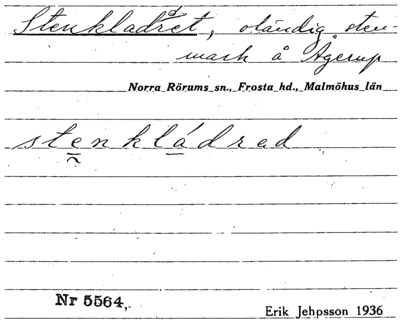 Stenkladret, oländig sten-
mark å Agerup
Norra Rörums sn., Frosta hd., Malmöhus län
stenkládrad
Nr 5564,
Erik Jehpsson 1936